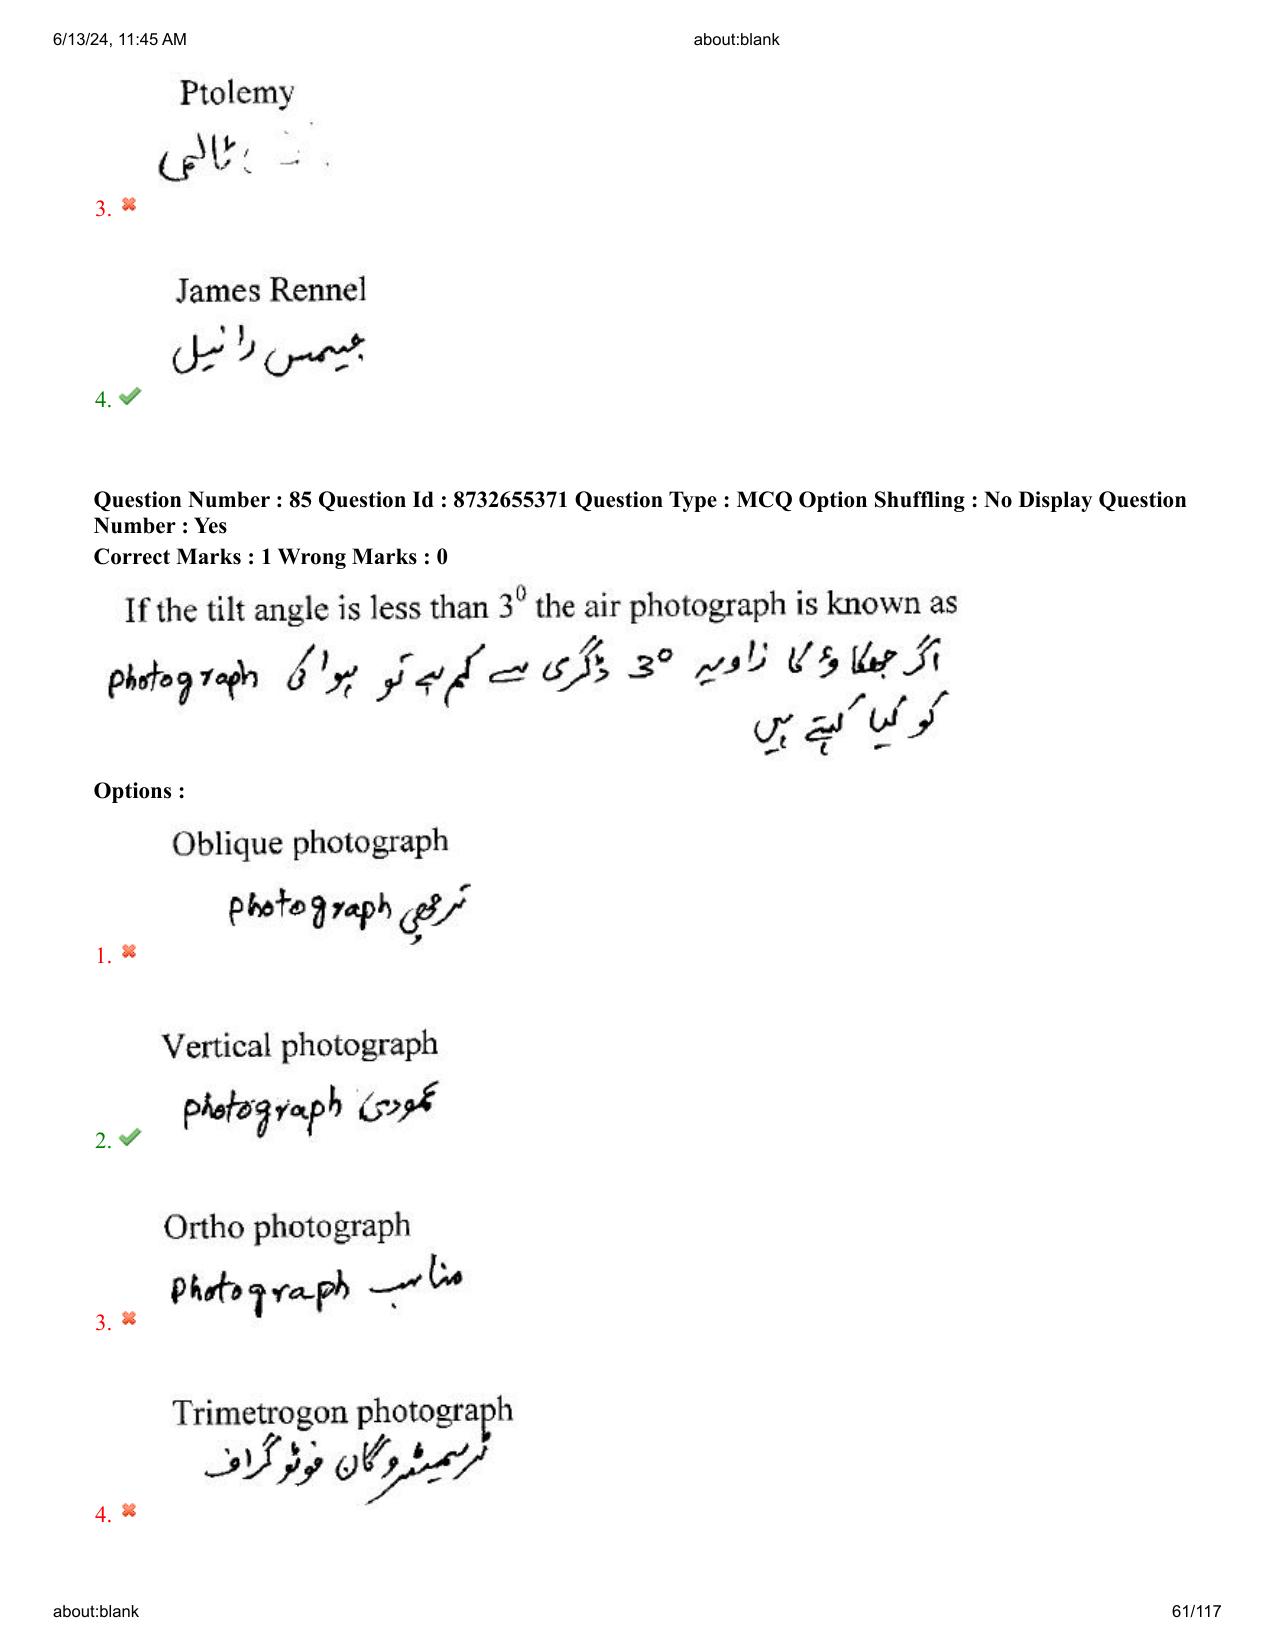 6/13/24, 11:45 AM about:blank
Ptolemy
ٹالمی
3.
James Rennel
جیمس رانیل
4.
Question Number : 85 Question Id : 8732655371 Question Type : MCQ Option Shuffling : No Display Question
Number : Yes
Correct Marks : 1 Wrong Marks : 0
If the tilt angle is less than 3⁰ the air photograph is known as
اگر جھکاوٴ کا زاویہ 3⁰ ڈگری سے کم ہے تو ہوائی photograph
کو کیا کہتے ہیں
Options :
Oblique photograph
ترچھی photograph
1.
Vertical photograph
عمودی photograph
2.
Ortho photograph
مناسب photograph
3.
Trimetrogon photograph
ٹریمیٹروگان فوٹوگراف
4.
about:blank 61/117